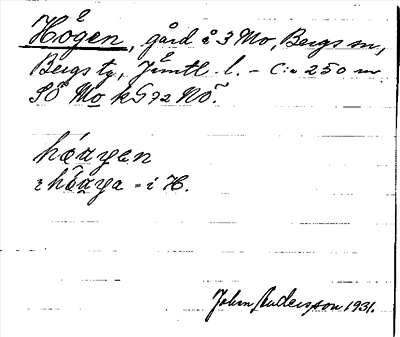 Högen, gård å 3 Mo, Bergs sn,
Bergs tg, Jämtl. l. – C:a 250 m
SÖ Mo k 592 NÖ.
i = i H.
John Andersson 1931.